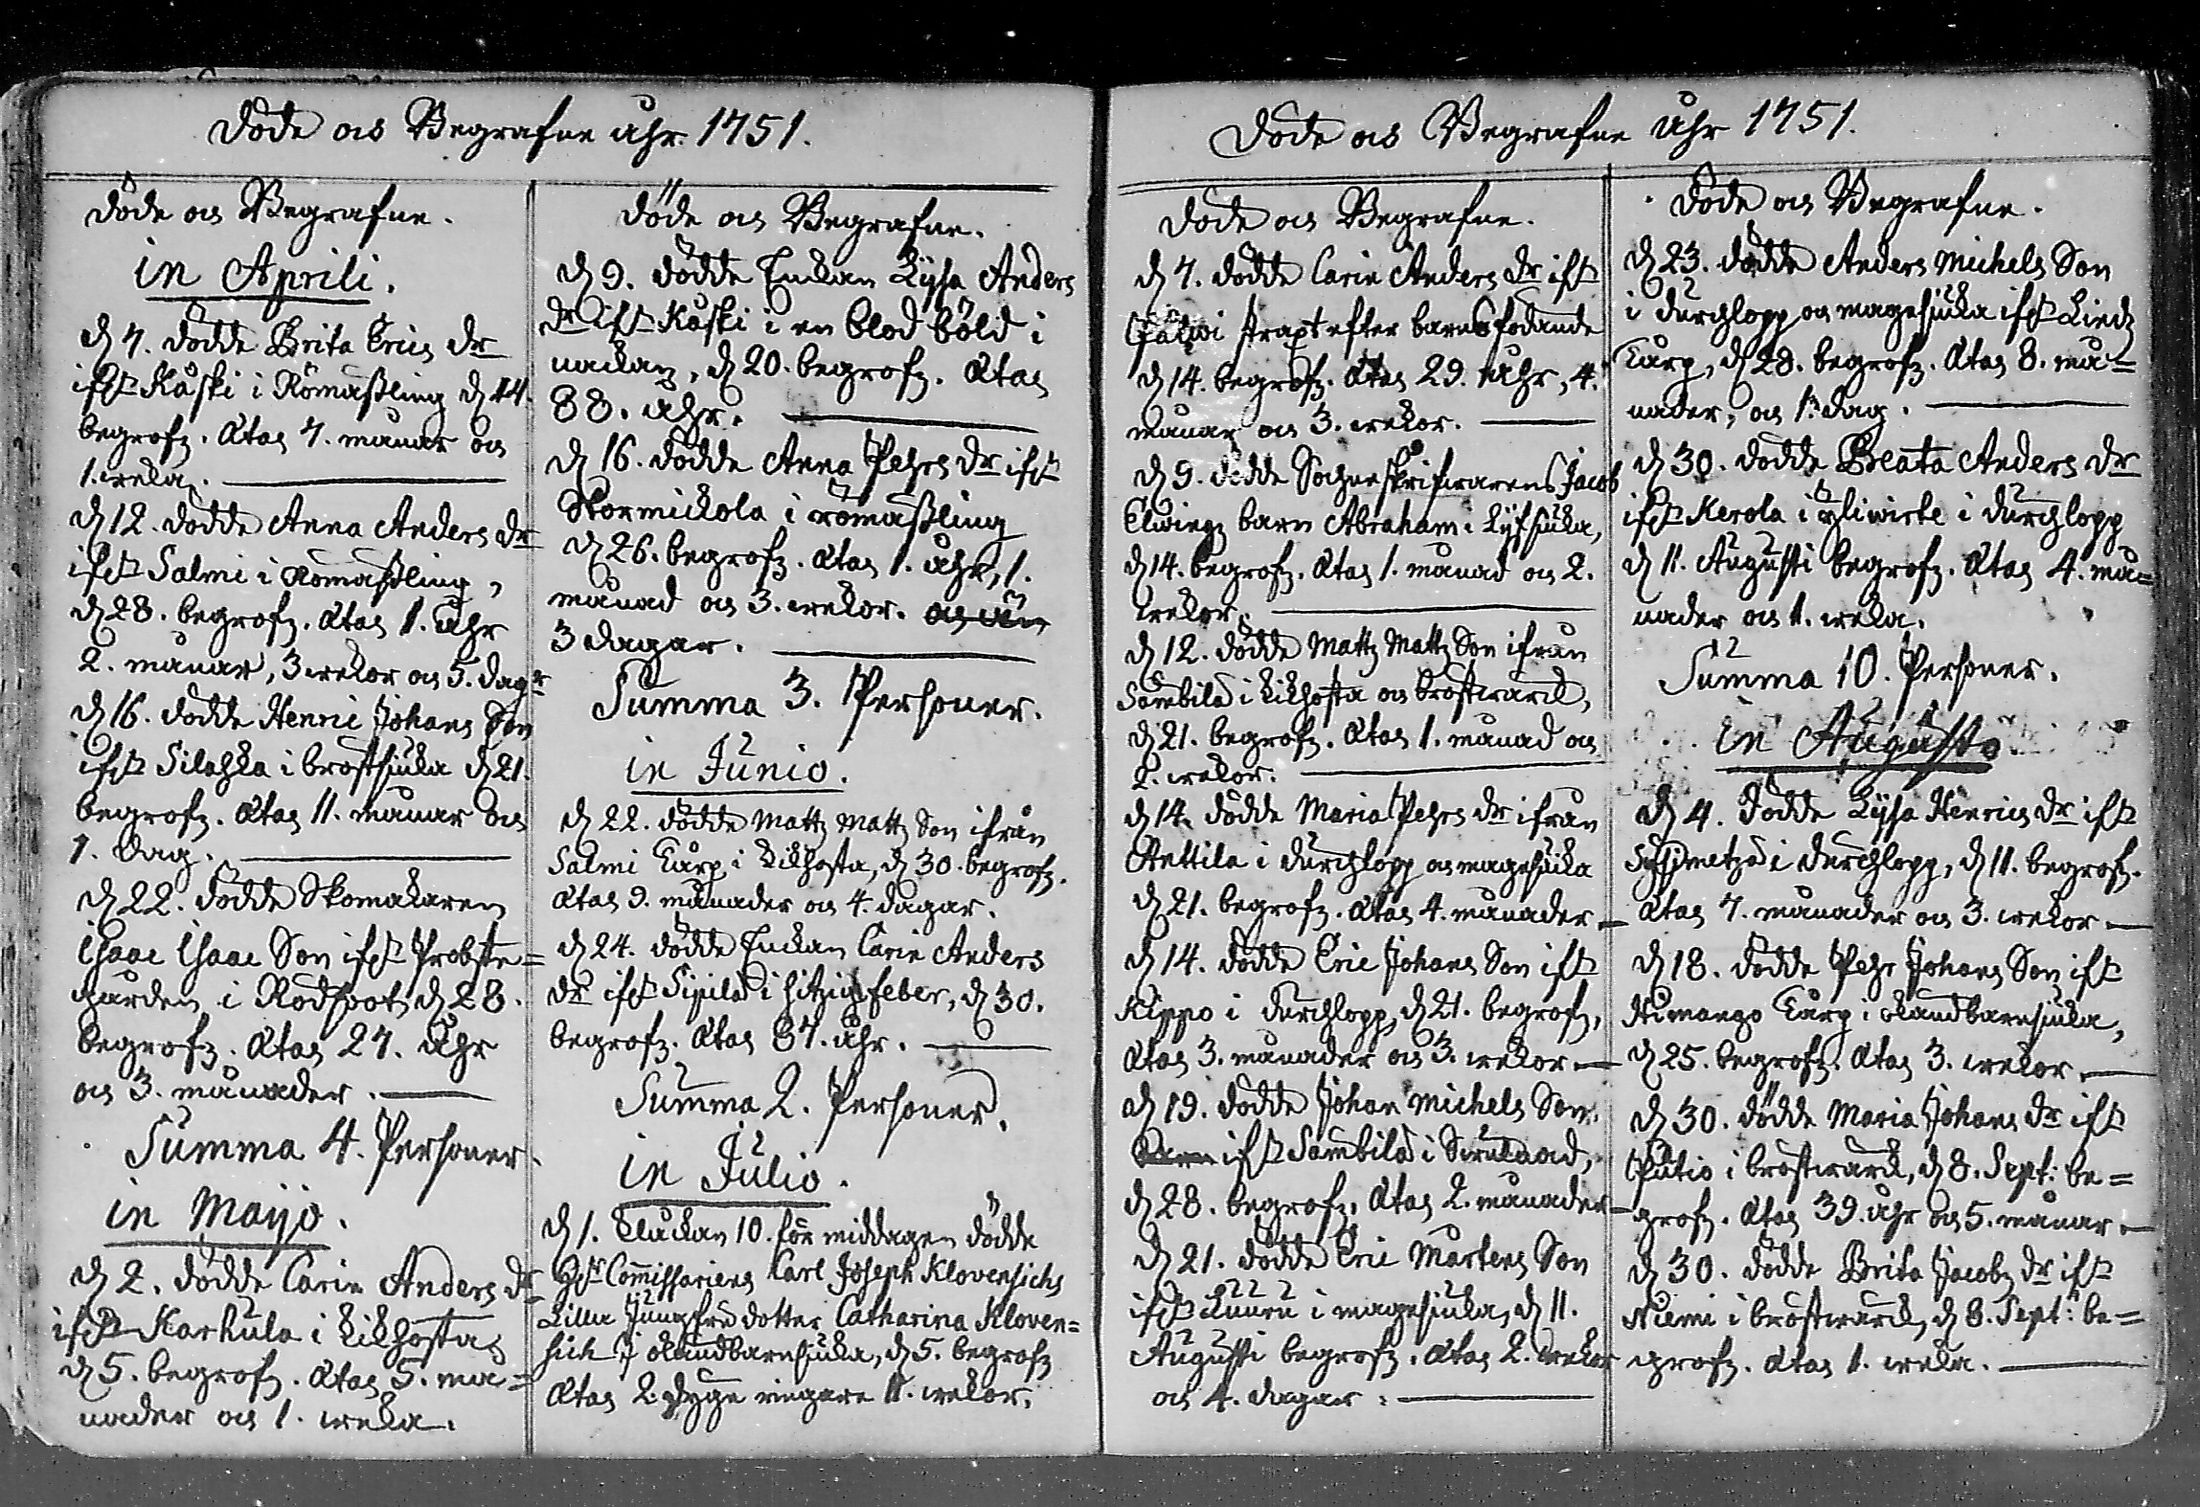 Döde och Begrafne åhr. 1751.
Döde och Begrafne.
in Aprili.
d. 7. dödde Brita Erics dr
ifr Kåski i Römaßling d. 14.
begrofz. Ætas 7. månar och
1. weka.
d. 12. dödde Anna Anders dr
ifr Salmi i Römaßling,
d. 28. begrofz. Ætas 1. åhr
2. månar, 3 wekor och 5. dagr
d. 16. dödde Henric Johans Son
ifr Silahka i bröstsiuka d. 21.
begrofz. Ætas 11. månar och
1. dag.
d. 22. dödde Skomakaren
Isaac Isaac Son ifr Probste=
gården i Rödsoot, d. 28.
begrofz. Ætas 27. åhr
och 3. månader.
Summa 4. Personer.
in Mayo.
d. 2. dödde Carin Anders dr
ifr Karhula i kikhosta,
d. 5. begrofz. Ætas 5. må=
nader och 1. weka.
Döde och Begrafne.
d. 9. dödde Enckan Lysa Anders
dr ifr Kåski i en blod böld i
nackan, d. 20. begrofz. Ætas
88. åhr.
d. 16. dödde Anna Pehrs dr ifr
Stormickola i römaßling
d. 26. begrofz. Ætas 1. åhr, 1.
månad och 3. wekor. och än
3 dagar.
Summa 3. Personer.
in Junio.
d. 22. dödde Matts Matts Son ifrån
Salmi Torp i kikhosta, d. 30. begrofz.
Ætas 9. månader och 4. dagar.
d. 24. dödde Enckan Carin Anders
dr ifr Sipilä i hitzig feber, d. 30.
begrofz. Ætas 87. åhr.
Summa 2. Personer.
in Julio.
d. 1. Kluckan 10. för middagen dödde
Hr Commissariens Carl Joseph Klovensichs
Lilla Jungfru dotter Catharina Kloven=
sich i okändbarnsiuka, d. 5. begrofz
Ætas 2. dygn ringare 11. wekor.
Döde och Begrafne Åhr 1751.
Döde och Begrafne.
d. 7. dödde Carin Anders dr ifr
straxt efter barnsfödande
d. 14. begrofz. Ætas 29. åhr, 4.
månar och 3. wekor.
d. 9. dödde Sochneskrifwarens Jacob
Elwings barn Abraham i Lyfsiuka,
d. 14. begrofz. Ætas 1. månad och 2.
wekor.
d. 12. dödde Matts Matts Son ifrån
Sambila i kikhosta och bröstwärck,
d. 21. begrofz. Ætas 1. månad och
2. wekor.
d. 14. dödde Maria Pehrs dr ifrån
Anttila i durchlopp och magesiuka
d. 21. begrofz. Ætas 4. månader
d. 14. dödde Eric Johans Son ifr
Kippo i durchlopp, d. 21. begrofz,
Ætas 3. månader och 3. wekor
d. 19. dödde Johan Michels Son,
ifr Sambila i
d. 28. begrofz. Ætas 2. månader
d. 21. dödde Eric Mårtens Son
ifr Luuru i magesiuka, d. 11.
Augusti begrofz. Ætas 2. wekor
och 4. dagar.
Döde och Begrafne.
d. 23. dödde Anders Michels Son
i durchlopp och magesiuka ifr Liedz
Torp, d. 28. begrofz. Ætas 8. må=
nader, och 1. dag.
d. 30. dödde Beata Anders dr
ifr Kerola i i durchlopp
d. 11. Augusti begrofz. Ætas 4. må=
nader och 1. weka.
Summa 10. Personer.
in Augusto
d. 4. dödde Lysa Henrics dr ifr
i durchlopp, d. 11. begrofz.
Ætas 7. månader och 3. wekor
d. 18. dödde Pehr Johans Son ifr
Himango Torp i okändbarnsiuka,
d. 25. begrofz. Ætas 3. wekor.
d. 30. dödde Maria Johans dr ifr
Putio i bröstwärck, d. 8. Sept: be=
grofz. Ætas 39. åhr och 5. månar
d. 30. dödde Brita Jacobs dr ifr
Niemi i bröstwärck, d. 8. Sept: be=
grofz. Ætas 1. weka.